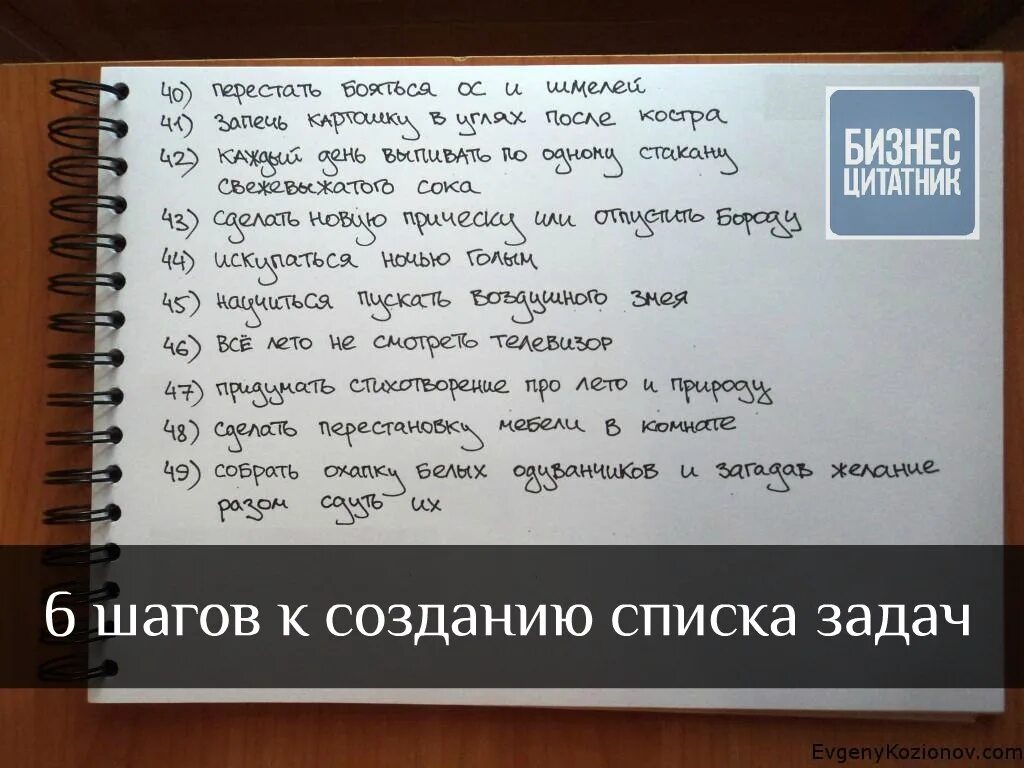 40) перестать бояться ос и шмелей
41) запечь картошку в углях после костра
42) каждый день выпивать по одному стакану
свежевыжатого сока
43) сделать новую прическу или отпустить бороду
44) искупаться ночью голым
45) научиться пускать воздушного змея
46) всё лето не смотреть телевизор
47) придумать стихотворение про лето и природу
48) сделать перестановку мебели в комнате
49) собрать охапку белых одуванчиков и загадав желание
разом сдуть их
БИЗНЕС
ЦИТАТНИК
6 шагов к созданию списка задач
EvgenyKozionov.com